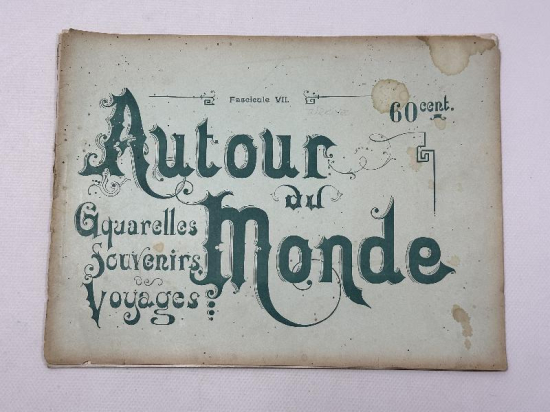 Fascicule VII.
60 cent.
Autour
du
Monde
Aquarelles
Souvenirs
de
Voyages